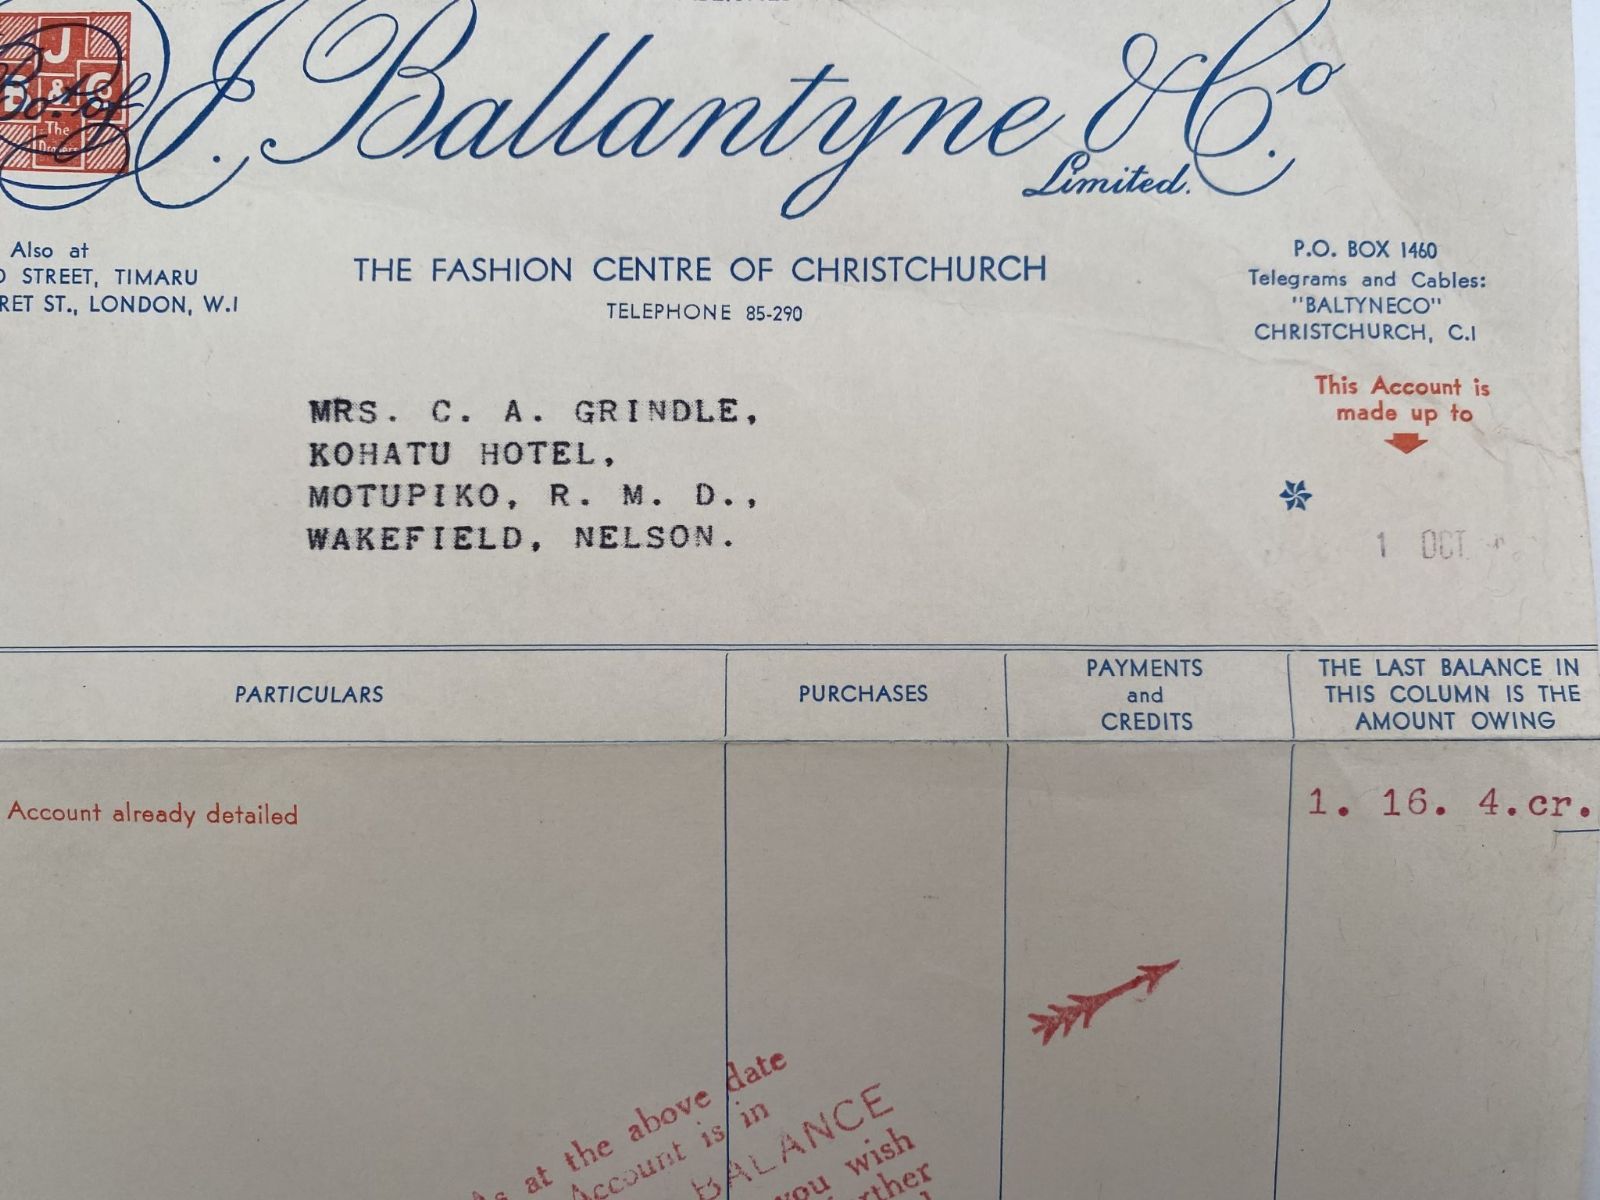 J
B & C
The
Drapers
Bot. of
J. Ballantyne & Co.
Limited.
Also at
STREET, TIMARU
ST., LONDON, W.1
THE FASHION CENTRE OF CHRISTCHURCH
TELEPHONE 85-290
P.O. BOX 1460
Telegrams and Cables:
"BALTYNECO"
CHRISTCHURCH, C.1
This Account is
made up to
MRS. C. A. GRINDLE,
KOHATU HOTEL,
MOTUPIKO, R. M. D.,
WAKEFIELD, NELSON.
1 OCT
PARTICULARS
PURCHASES
PAYMENTS
and
CREDITS
THE LAST BALANCE IN
THIS COLUMN IS THE
AMOUNT OWING
Account already detailed
1. 16. 4.cr.
As at the above date
Account is in
BALANCE
you wish